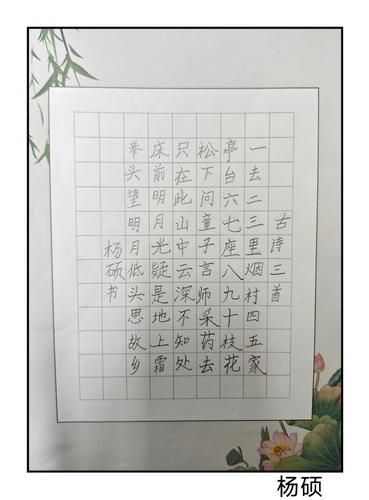 古诗三首
一去二三里烟村四五家
亭台六七座八九十枝花
松下问童子言师采药去
只在此山中云深不知处
床前明月光疑是地上霜
举头望明月低头思故乡
杨硕书
杨硕